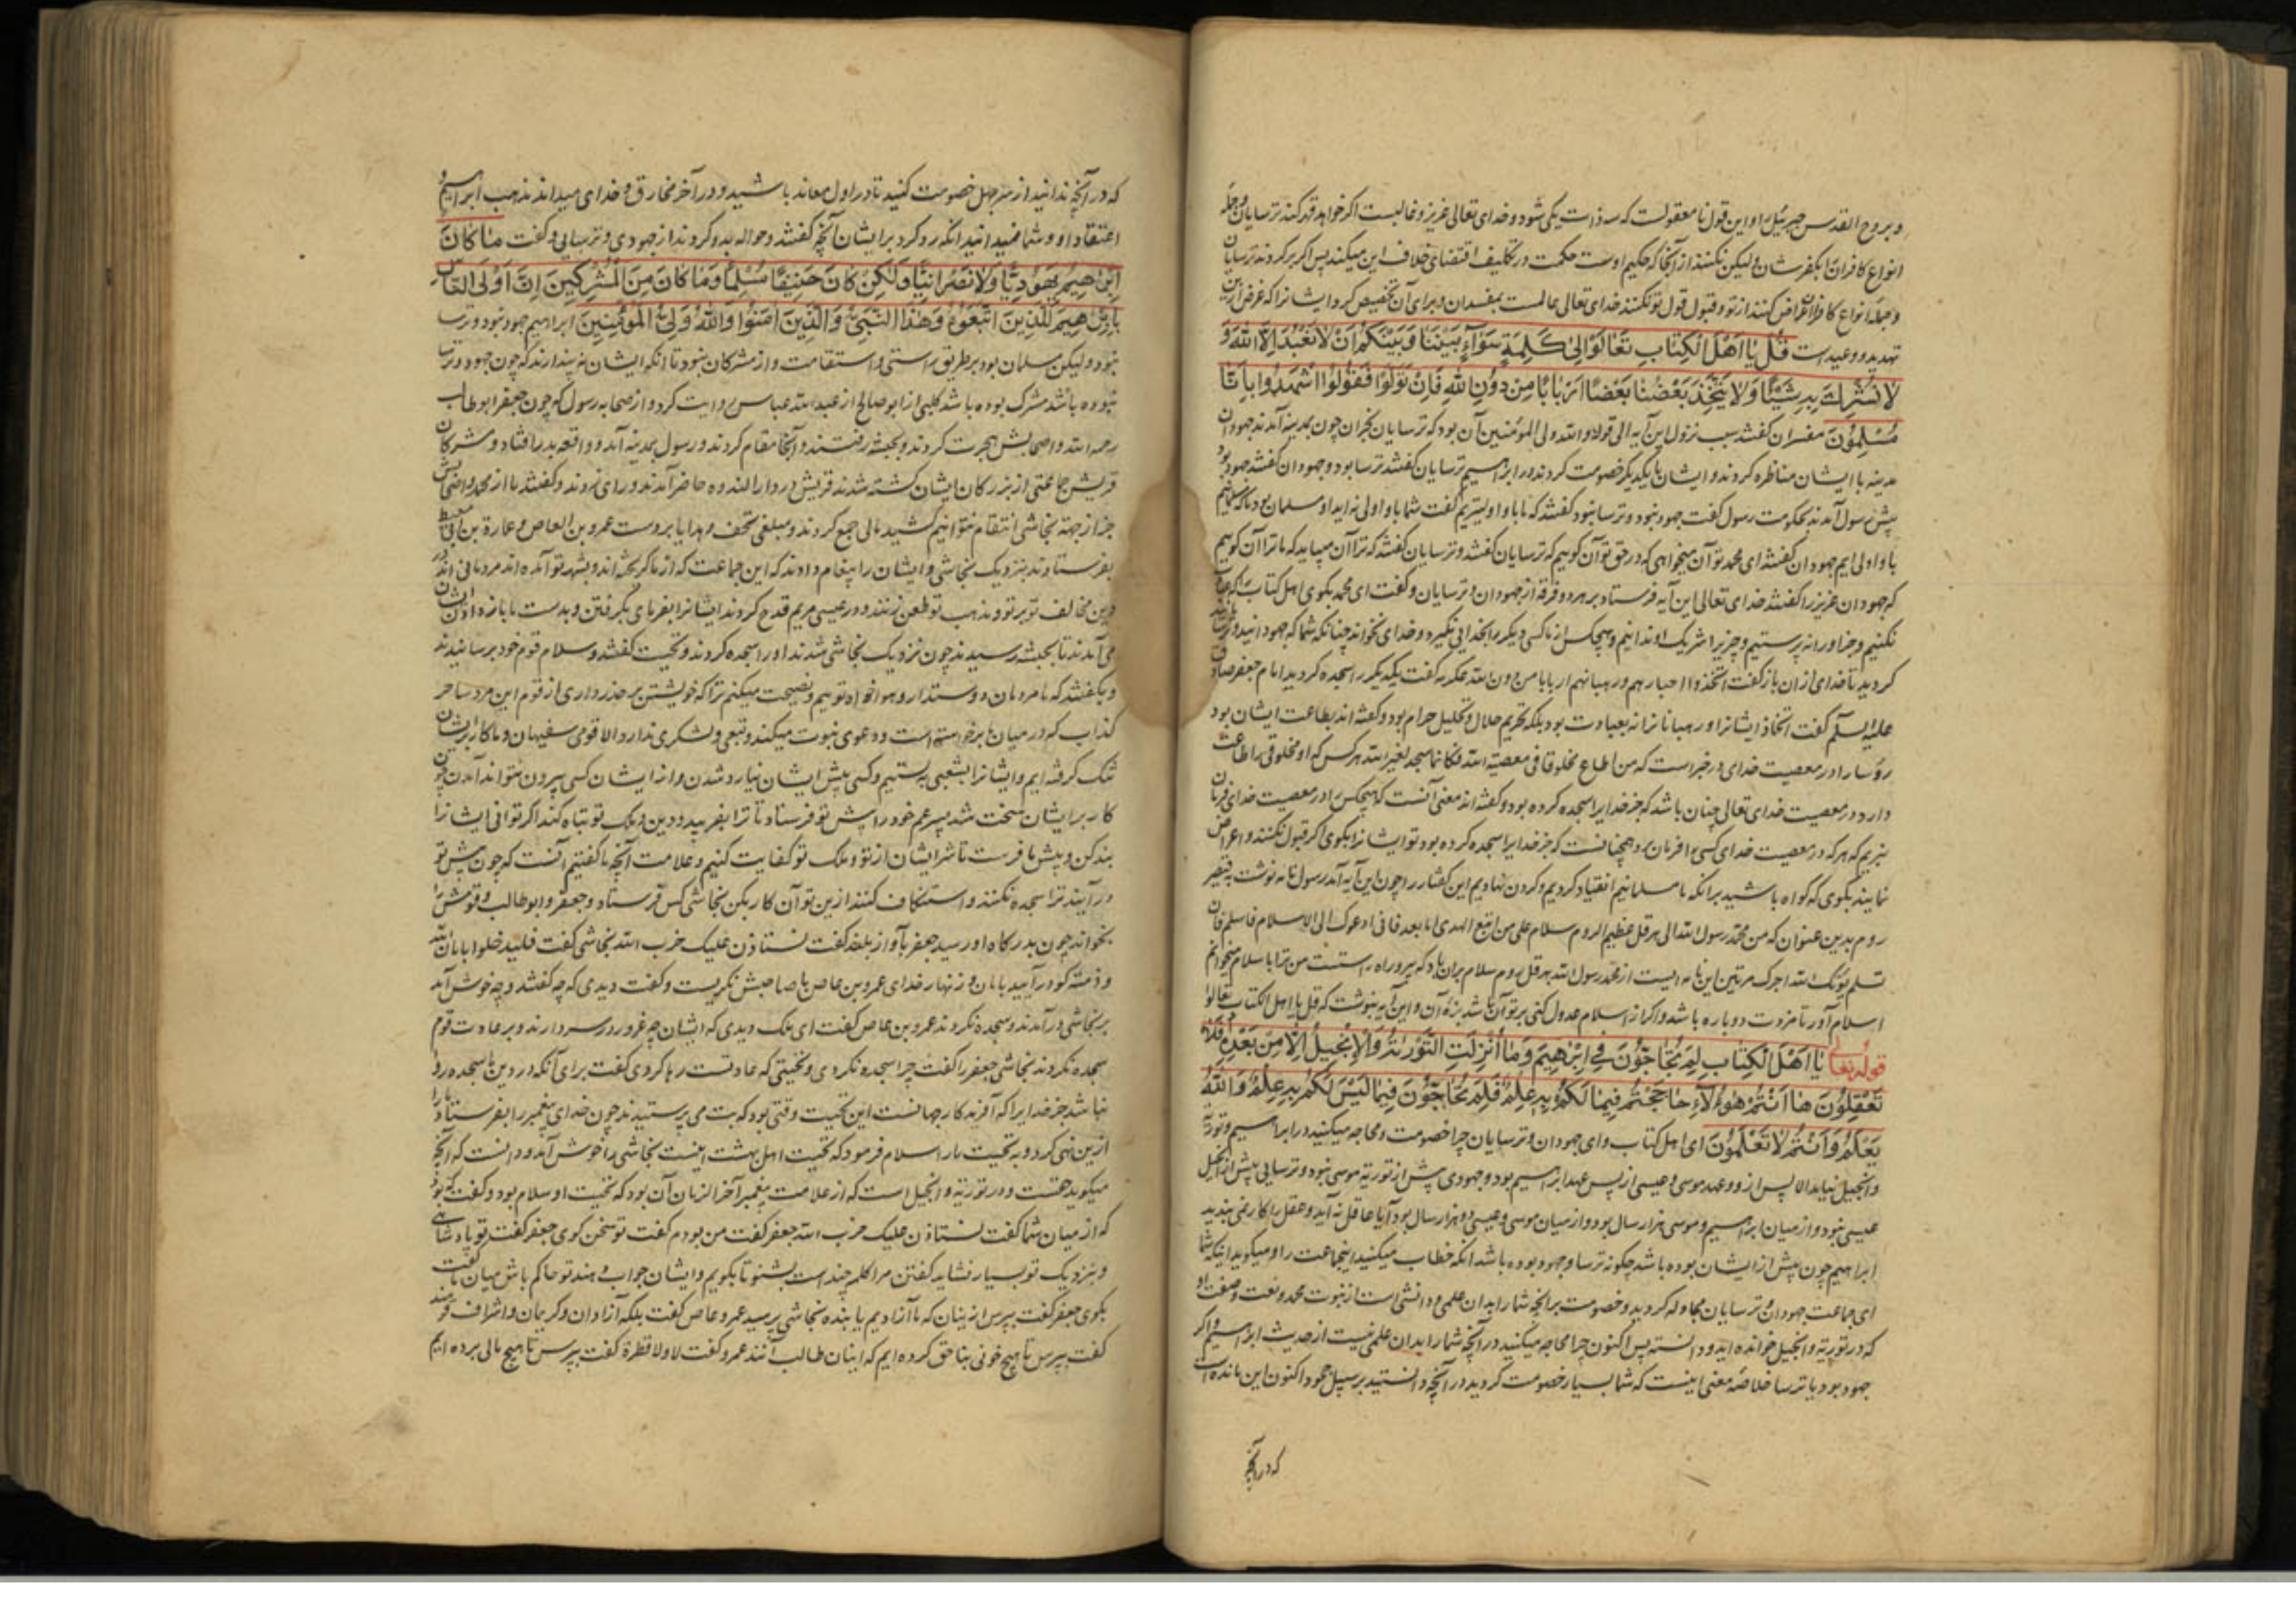 و بروح القدس جبرئیل را و این قول نامعقولست که سه ذات یکی شود و خدای تعالی عزیز و غالبست اگر خواهد قهر کند ترسایان و جمله
انواع کافران را بکفرشان ولیکن نکند از آنجا که حکیم اوست حکمت در تکلیف اقتضای خلاف این میکند پس اگر برگردند ترسایان
و جمله انواع کافران اعراض کنند از تو و قبول قول تو نکنند خدای تعالی عالمست بمفسدان و برای آن تخصیص کرد ایشانرا که غرض ازین
تهدید و وعید است قُلْ یَا اَهْلَ الْکِتَابِ تَعَالَوْا اِلیٰ کَلِمَةٍ سَوَآءٍ بَیْنَنَا وَبَیْنَکُمْ اَنْ لَا نَعْبُدَ اِلَّا اللّٰهَ وَ
لَا نُشْرِكَ بِهِ شَیْئًا وَلَا یَتَّخِذَ بَعْضُنَا بَعْضًا اَرْبَابًا مِنْ دُونِ اللّٰهِ فَاِنْ تَوَلَّوْا فَقُولُوا اشْهَدُوا بِاَنَّا
مُسْلِمُونَ مفسران گفتند سبب نزول این آیه الی قوله والله ولی المؤمنین آن بود که ترسایان نجران چون بمدینه آمدند جهودان
مدینه با ایشان مناظره کردند و ایشان با یکدیگر خصومت کردند در ابراهیم ترسایان گفتند ترسا بود و جهودان گفتند جهود بود
پیش رسول آمدند بحکومت رسول گفت جهود نبود و ترسا نبود گفتند که ما باو اولیتریم گفت شما باو اولی نه اید او مسلمان بود ما که مسلمانیم
باو اولی ایم جهودان گفتند ای محمد تو آن میخواهی که در حق تو آن گوییم که ترسایان گفتند و ترسایان گفتند که ترا آن میباید که ما ترا آن گوییم
که جهودان عزیر را گفتند خدای تعالی این آیه فرستاد بر هر دو فرقه از جهودان و ترسایان و گفت ای محمد بگوی اهل کتاب را که
نکنیم و جز او را نپرستیم و چیزی را شریک او ندانیم و هیچکس از ما کسی دیگر را بخدایی نگیرد و خدای نخواند چنانکه شما که جهودانید و ترسا
کردید تا خدای از آن باز گفت اتخذوا احبارهم و رهبانهم اربابا من دون الله عکرمه گفت یکدیگر را سجده کردید امام جعفر صادق
علیه السلام گفت اتخاذ ایشان او رهبانانرا نه بعبادت بود بلکه تحریم حلال و تحلیل حرام بود و گفته اند بطاعت ایشان بود
رؤسا را در معصیت خدای در خبر است که من اطاع مخلوقا فی معصیة الله فکانما سجد لغیر الله هر کس که او مخلوقی را طاعت
دارد در معصیت خدای تعالی چنان باشد که جز خدا را سجده کرده بود و گفته اند معنی آنست که هیچکس را در معصیت خدای فرمان
نبریم که هر که در معصیت خدای کسی را فرمان برد همچنانست که جز خدا را سجده کرده بود تو ایشانرا بگوی اگر قبول نکنند و اعراض
نمایند بگوی که گواه باشید بر آنکه ما مسلمانیم انقیاد کردیم و گردن نهادیم این گفتار را چون این آیه آمد رسول نامه نوشت بقیصر
روم بدین عنوان که من محمد رسول الله الی هرقل عظیم الروم سلام علی من اتبع الهدی اما بعد فانی ادعوک الی الاسلام فاسلم فان
تسلم یؤتک الله اجرک مرتین این نامه ایست از محمد رسول الله بهرقل روم سلام بر آن باد که پیرو راه راستست من ترا باسلام میخوانم
اسلام آور تا مزدت دوباره باشد و اگر از اسلام عدول کنی بر تو آن باشد بزه آن و این آیه بنوشت که قل یا اهل الکتاب تعالوا
قوله تعالی یَا اَهْلَ الْکِتَابِ لِمَ تُحَاجُّونَ فِی اِبْرٰهِیمَ وَمَا اُنْزِلَتِ التَّوْرٰیةُ وَالْاِنْجِیلُ اِلَّا مِنْ بَعْدِهِ اَفَلَا
تَعْقِلُونَ هَا اَنْتُمْ هٰؤُلَآءِ حَاجَجْتُمْ فِیمَا لَکُمْ بِهِ عِلْمٌ فَلِمَ تُحَاجُّونَ فِیمَا لَیْسَ لَکُمْ بِهِ عِلْمٌ وَاللّٰهُ
یَعْلَمُ وَاَنْتُمْ لَا تَعْلَمُونَ ای اهل کتاب و ای جهودان و ترسایان چرا خصومت و محاجه میکنید در ابراهیم و توریة
و انجیل نیامد الا پس از و و عهد موسی و عیسی از پس عهد ابراهیم بود و جهودی پیش از توریة موسی نبود و ترسایی پیش از انجیل
عیسی نبود و از میان ابراهیم و موسی هزار سال بود و از میان موسی و عیسی دو هزار سال بود آیا عاقل نه آید و عقل را کار نمی بندید
ابراهیم چون پیش از ایشان بوده باشد چگونه ترسا و جهود بوده باشد آنکه خطاب میکند اینجماعت را و میگوید اینکه شما
ای جماعت جهودان و ترسایان مجادله کردید و خصومت بر آنچه شما را بدان علمی و دانشی است از نبوت محمد و نعت و صفت او
که در توریة و انجیل خوانده اید و دانسته پس اکنون چرا محاجه میکنید در آنچه شما را بدان علم نیست از حدیث ابراهیم و اگر
جهود بود یا ترسا خلاصه معنی اینست که شما بسیار خصومت کردید در آنچه دانستید بر سبیل جحود اکنون این مانده است
که در آنچه
که در آنچه ندانید از سر جهل خصومت کنید تا در اول معاند باشید و در آخر مخارق و خدای میداند مذهب ابراهیم و
اعتقاد او و شما نمیدانید آنگه رد کرد بر ایشان آنچه گفتند و حواله بدو کردند از جهودی و ترسایی و گفت مَا کَانَ
اِبْرٰهِیمُ یَهُودِیًّا وَلَا نَصْرَانِیًّا وَلٰکِنْ کَانَ حَنِیفًا مُسْلِمًا وَمَا کَانَ مِنَ الْمُشْرِکِینَ اِنَّ اَوْلَی النَّاسِ
بِاِبْرٰهِیمَ لَلَّذِینَ اتَّبَعُوهُ وَهٰذَا النَّبِیُّ وَالَّذِینَ اٰمَنُوا وَاللّٰهُ وَلِیُّ الْمُؤْمِنِینَ ابراهیم جهود نبود و ترسا
نبود ولیکن مسلمان بود بر طریق راستی و استقامت و از مشرکان نبود تا آنکه ایشان نه پندارند که چون جهود و ترسا
نبوده باشد مشرک بوده باشد کلبی از ابو صالح از عبد الله عباس روایت کرد و از صحابه رسول که چون جعفر ابو طالب
رحمه الله و اصحابش هجرت کردند و بحبشه رفتند و آنجا مقام کردند و رسول بمدینه آمد و واقعه بدر افتاد و مشرکان
قریش جماعتی از بزرگان ایشان کشته شدند قریش در دار الندوه حاضر آمدند و رای زدند و گفتند ما از محمد و اصحابش
جز از جهة نجاشی انتقام نتوانیم کشید مالی جمع کردند و مبلغی تحف و هدایا بدست عمرو بن العاص و عمارة بن ابی معیط
بفرستادند بنزدیک نجاشی و ایشان را پیغام دادند که این جماعت که از ما گریخته اند و بشهر تو آمده اند مردمانی اند در
دین مخالف تو بر تو و مذهب تو طعن زنند و در عیسی مریم قدح کردند ایشانرا بفرمای بگرفتن و بدست ما باز ده ایشان
می آمدند تا بحبشه رسیدند چون نزدیک نجاشی شدند او را سجده کردند و تحیت گفتند و سلام قوم خود برسانیدند
و بگفتند که ما مردمان دوستدار و هواخواه توییم و نصیحت میکنیم ترا که خویشتن بر حذر داری از قوم این مرد ساحر
کذاب که در میان ما برخاسته است و دعوی نبوت میکند و تبعی و لشکری ندارد الا قومی سفیهان و ما کار بریشان
تنگ کرفته ایم و ایشانرا بشعبی بستیم و کسی پیش ایشان نیارد شدن و از ایشان کسی بیرون نتواند آمدن چون
کار بر ایشان سخت شد پسر عم خود را پیش تو فرستاد تا ترا بفریبد و دین و ملک تو تباه کند اگر توانی ایشانرا
بند کن و پیش ما فرست تا شر ایشان از تو و ملک تو کفایت کنیم و علامت آنچه ما گفتیم آنست که چون پیش تو
در آیند ترا سجده نکنند و استنکاف کنند ازین تو آن کار بکن نجاشی کس فرستاد و جعفر و ابو طالب و قومش را
بخواند چون بدرگاه او رسید جعفر بآواز بلند گفت نستاذن علیک حزب الله نجاشی گفت فلیدخلوا بامان الله
و ذمته گو در آیید بامان و زنهار خدای عمرو بن عاص با صاحبش نگریست و گفت دیدی که چه گفتند و چه خوش آمد
بر نجاشی درآمدند و سجده نکردند عمرو بن عاص گفت ای ملک دیدی که ایشان چه غرور در سر دارند و بر عادت قوم
سجده نکردند نجاشی جعفر را گفت چرا سجده نکردی و تحیتی که عادتست رها کردی گفت برای آنکه در دین ما سجده روا
نباشد جز خدا را که آفریدگار جهانست این تحیت وقتی بود که بت می پرستیدند چون خدای پیغمبر را بفرستاد ما را
ازین نهی کرد و به تحیت ما را سلام فرمود که تحیت اهل بهشت اینست نجاشی را خوش آمد و دانست که آنچه
میگوید حقست و در توریة و انجیل است که از علامت پیغمبر آخر الزمان آن بود که تحیت او سلام بود و گفت که بود
که از میان شما گفت نستاذن علیک حزب الله جعفر گفت من بودم گفت تو سخن گوی جعفر گفت تو پادشاهی
و بنزدیک تو بسیار نشاید گفتن مرا کلمه چند است بشنو تا بگویم و ایشان جواب دهند تو حاکم باش میان ما گفت
بگوی جعفر گفت بپرس از اینان که ما آزادیم یا بنده نجاشی پرسید عمرو عاص گفت بلکه آزادان و کریمان و اشراف قومند
گفت بپرس تا هیچ خونی بناحق کرده ایم که اینان طالب آنند عمرو گفت لا ولا قطرة گفت بپرس تا هیچ مالی برده ایم